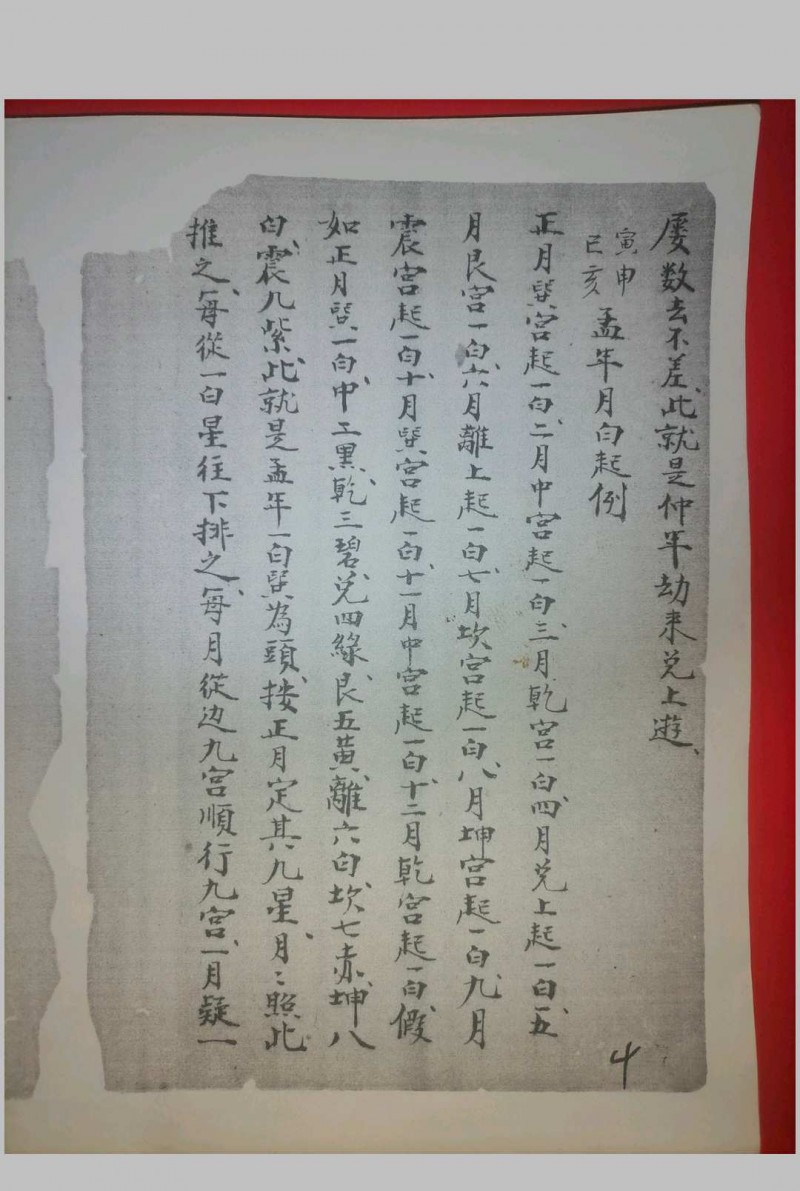 屡数去不差、此就是仲年劫来兑上遊、
寅申巳亥孟年月白起例
正月巽宫起一白、二月中宫起一白、三月乾宫一白、四月兑上起一白、五
月艮宫一白、六月離上起一白、七月坎宫起一白、八月坤宫起一白、九月
震宫起一白、十月巽宫起一白、十一月中宫起一白、十二月乾宫起一白、假
如正月巽一白、中二黑、乾三碧、兑四綠、艮五黄、離六白、坎七赤、坤八
白、震九紫、此就是孟年一白巽為頭、按正月定其九星、月〻照此
推之、每從一白星往下排之、每月從边九宫順行九宫、一月疑一
4